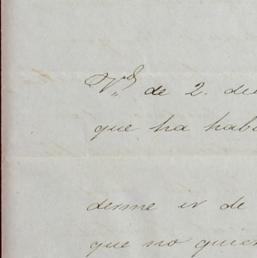 V. de 2. de
que ha hab
derme ir de
que no quie